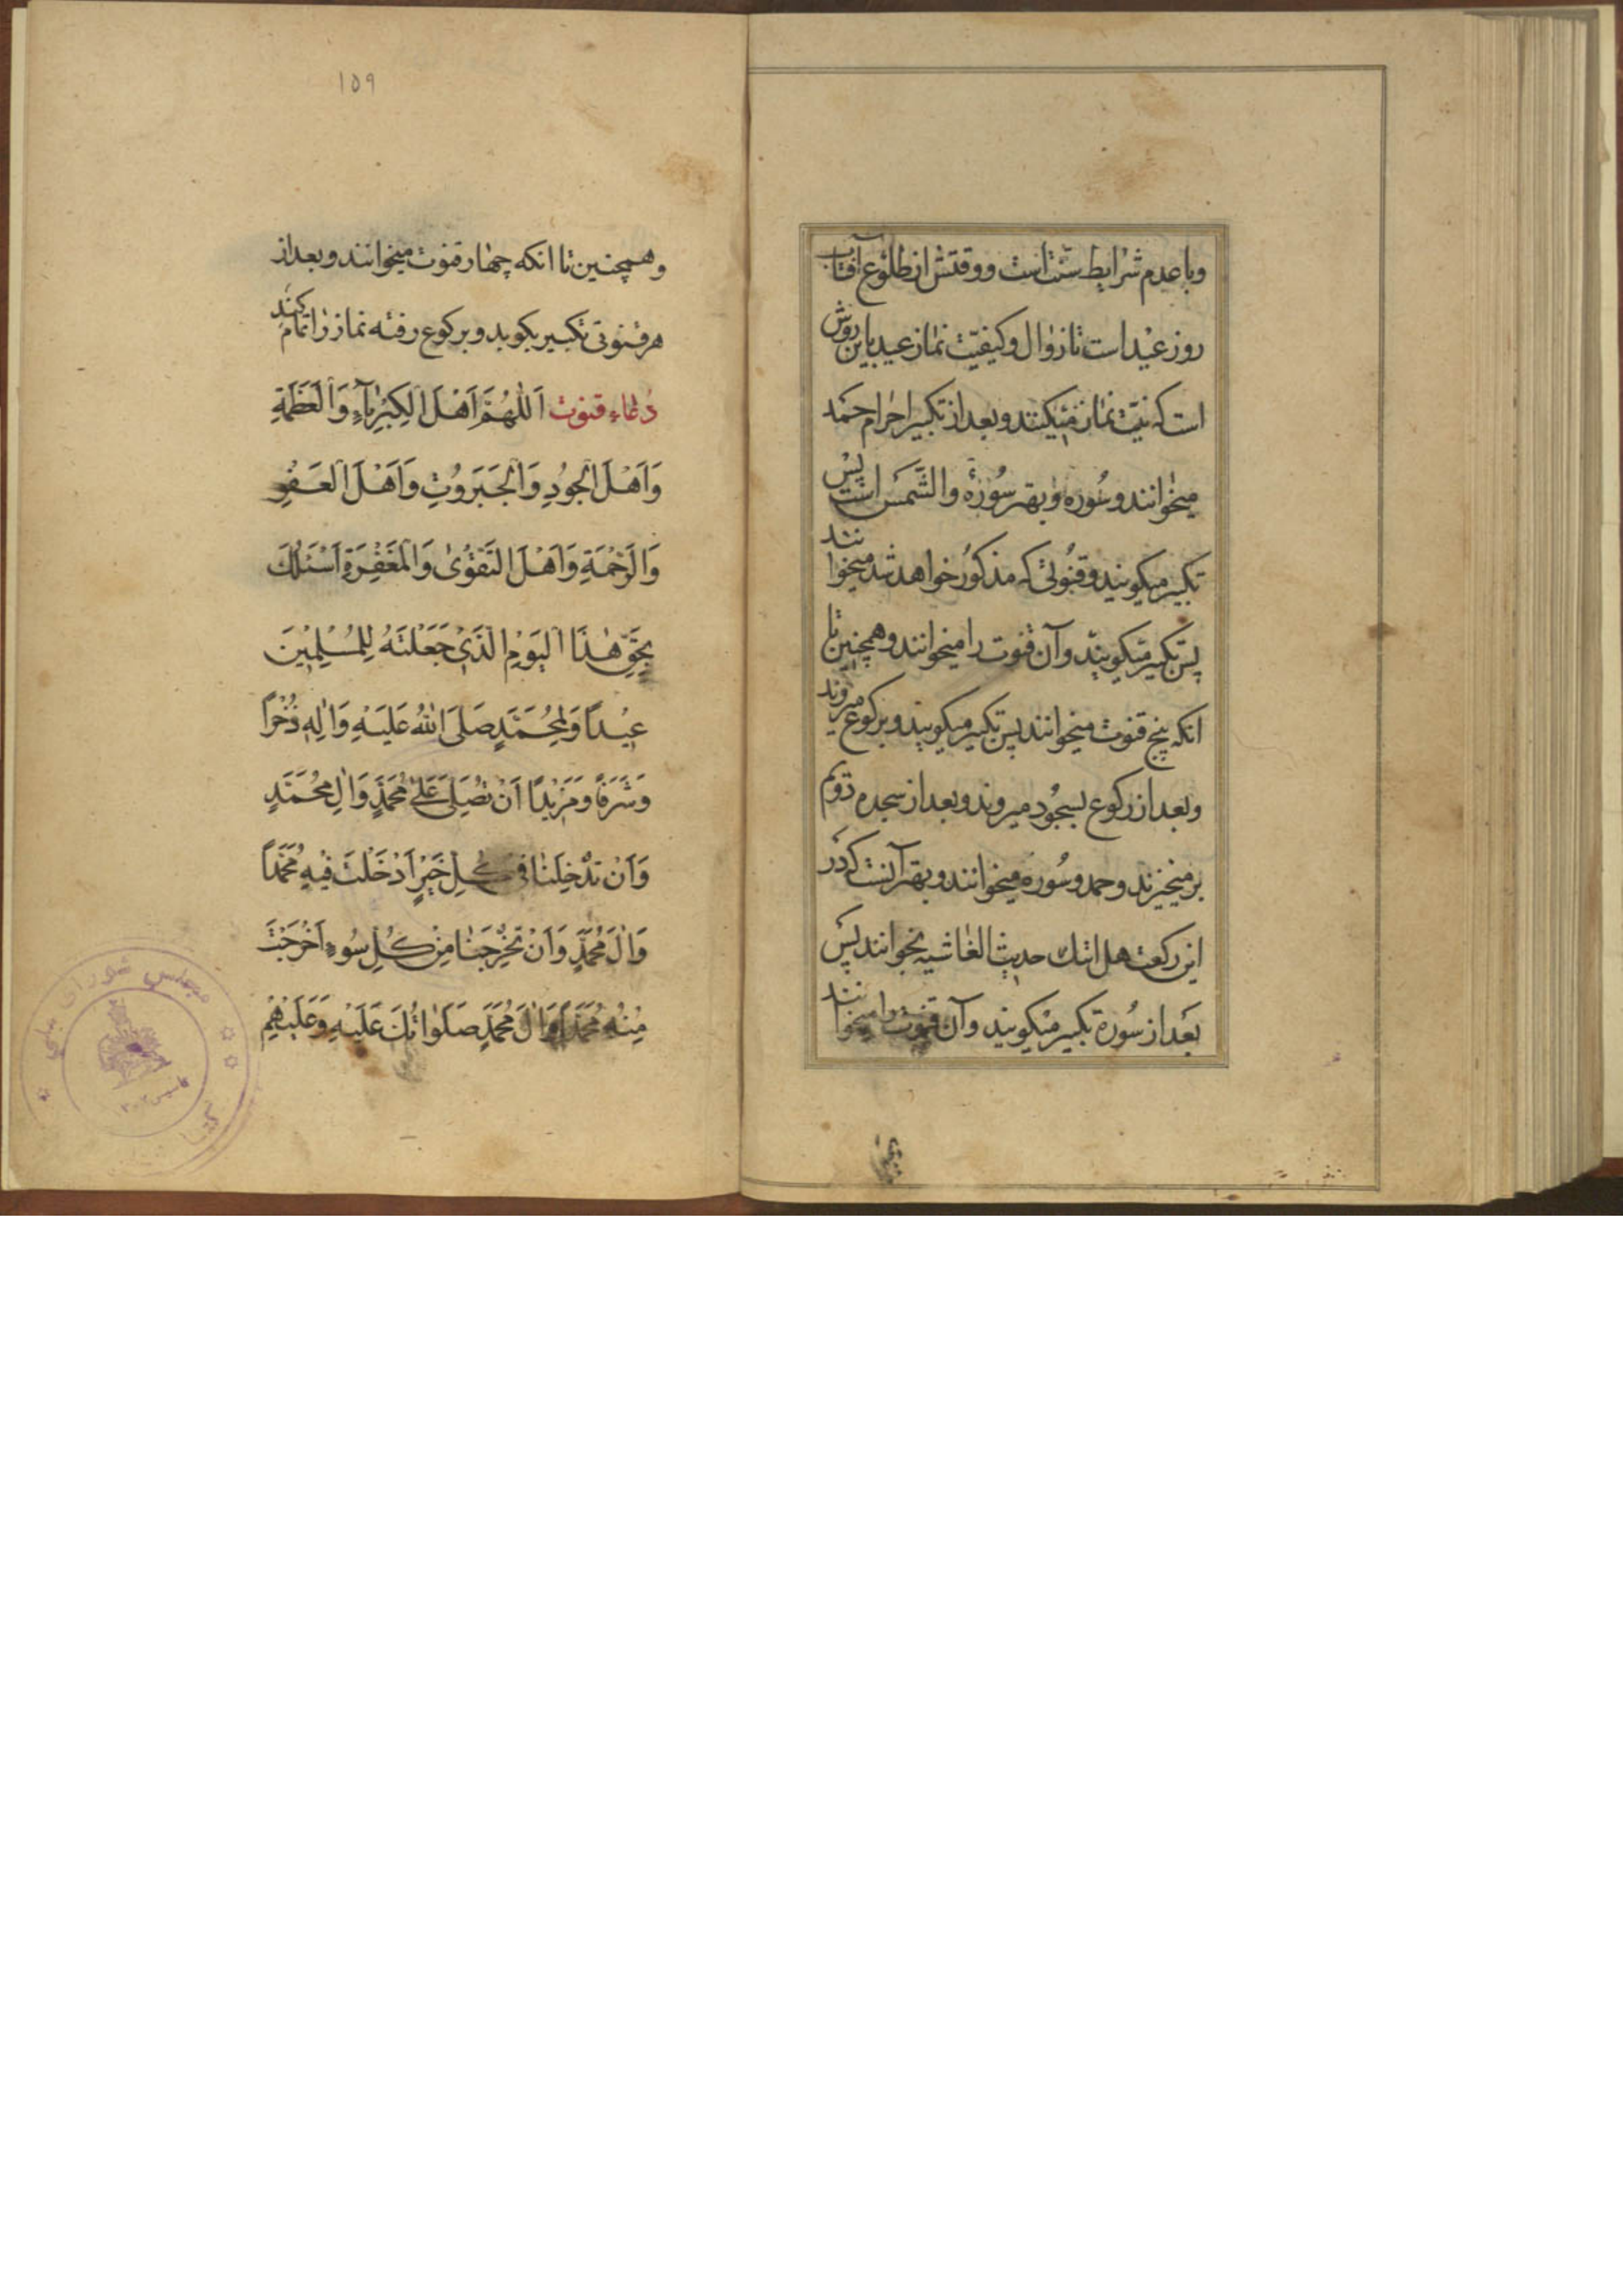 وباعدم شرایط سنت است ووقتش از طلوع آفتاب
روز عید است تا زوال و کیفیّت نماز عید باین روش
است که نیّت نماز میکنند و بعد از تکبیر احرام حمد
میخوانند و سوره و بهتر سورهٔ والشّمس است پس
تکبیر میکویند و قنوتی که مذکور خواهد شد میخوانند
پس تکبیر میکویند و آن قنوت را میخوانند و همچنین تا
انکه پنج قنوت میخوانند پس تکبیر میکویند و برکوع میروند
و بعد از رکوع بسجود میروند و بعد از سجده دویم
برمیخیزند و حمد و سوره میخوانند و بهتر آنست که در
این رکعت هل اتیك حدیث الغاشیه بخوانند پس
بعد از سوره تکبیر میکویند و آن قنوت را میخوانند
۱۵۹
و همچنین تا انکه چهار قنوت میخوانند و بعد از
هر قنوتی تکبیر بکوید و برکوع رفته نماز را تمام کند
دُعاء قنوت اَللّٰهُمَّ اَهْلَ الْكِبْرِيآءِ وَالْعَظَمَةِ
وَاَهْلَ الْجُودِ وَالْجَبَرُوتِ وَاَهْلَ الْعَفْوِ
وَالرَّحْمَةِ وَاَهْلَ التَّقْوٰى وَالْمَغْفِرَةِ اَسْئَلُكَ
بِحَقِّ هٰذَا الْيَوْمِ الَّذِي جَعَلْتَهُ لِلْمُسْلِمِينَ
عِيْداً وَلِمُحَمَّدٍ صَلَّى اللهُ عَلَيْهِ وَاٰلِهِ ذُخْراً
وَشَرَفاً وَمَزِيْداً اَنْ تُصَلِّيَ عَلىٰ مُحَمَّدٍ وَاٰلِ مُحَمَّدٍ
وَاَنْ تُدْخِلَنا فى كُلِّ خَيْرٍ اَدْخَلْتَ فِيْهِ مُحَمَّداً
وَاٰلَ مُحَمَّدٍ وَاَنْ تُخْرِجَنا مِنْ كُلِّ سُوءٍ اَخْرَجْتَ
مِنْهُ مُحَمَّداً وَاٰلَ مُحَمَّدٍ صَلَوٰاتُكَ عَلَيْهِ وَعَلَيْهِمْ
مجلس شورای ملی